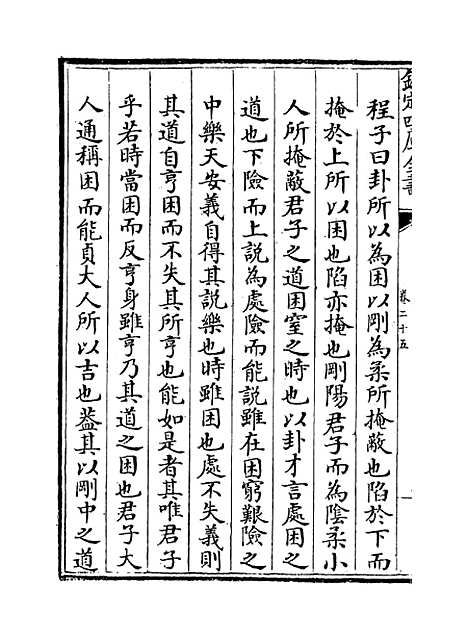 欽定四庫全書
卷二十五
程子曰卦所以為困以剛為柔所掩蔽也陷於下而
掩於上所以困也陷亦掩也剛陽君子而為陰柔小
人所掩蔽君子之道困窒之時也以卦才言處困之
道也下險而上説為處險而能説雖在困窮艱險之
中樂天安義自得其説樂也時雖困也處不失義則
其道自亨困而不失其所亨也能如是者其唯君子
乎若時當困而反亨身雖亨乃其道之困也君子大
人通稱困而能貞大人所以吉也葢其以剛中之道